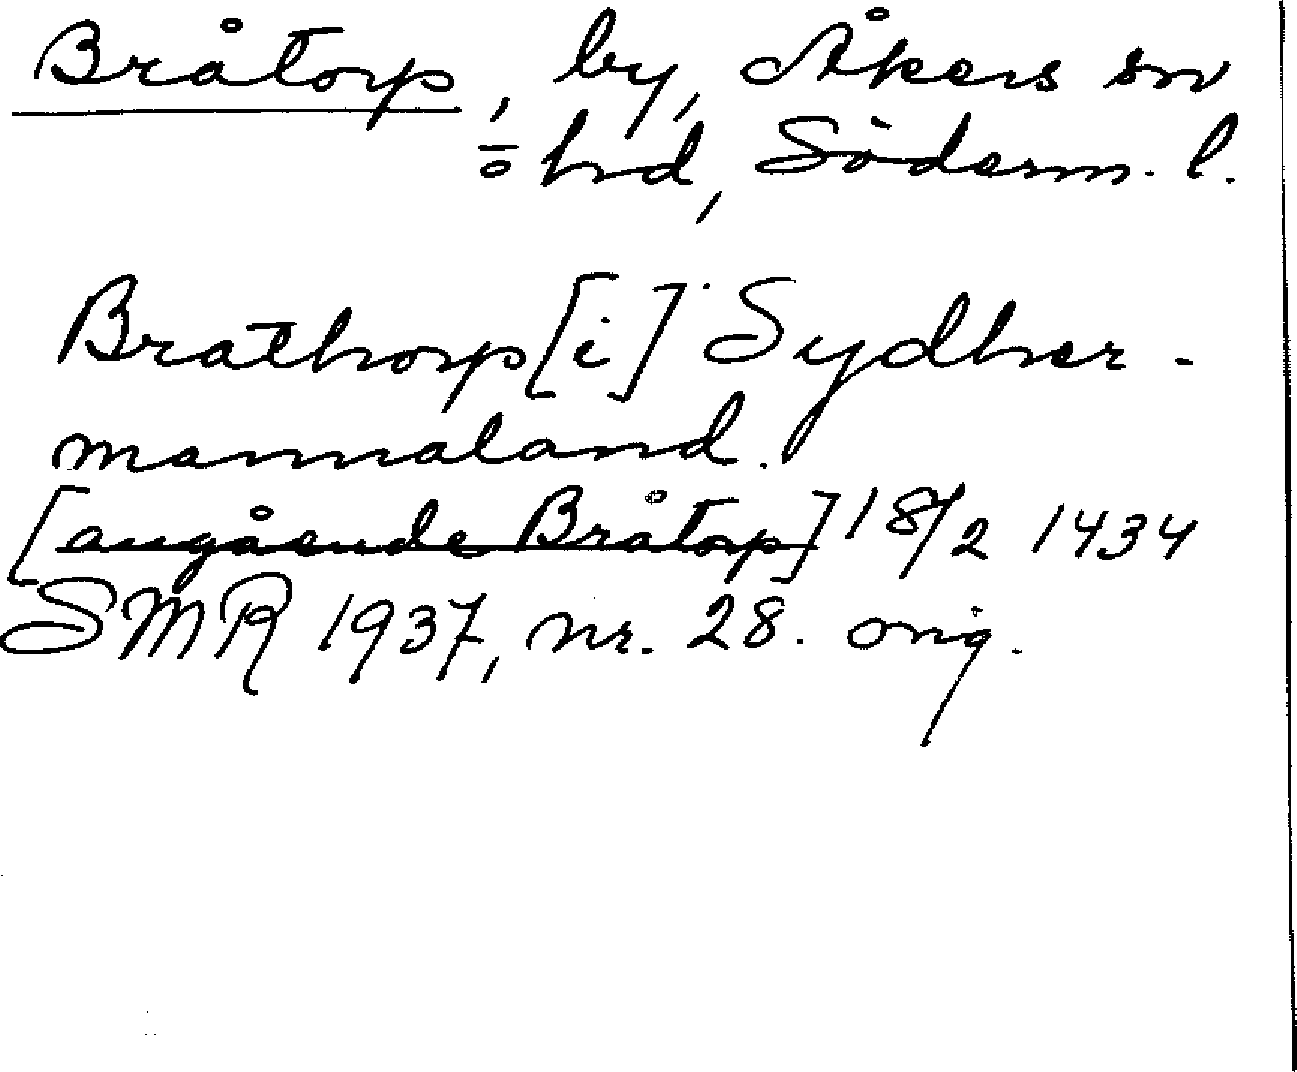 Bråtorp, by, Åkers sn
o hd, Söderm. l.
Brathorp [i] Sydher-
mannaland.
[angående Bråtorp] 18/2 1434
SMR 1937, nr. 28. orig.